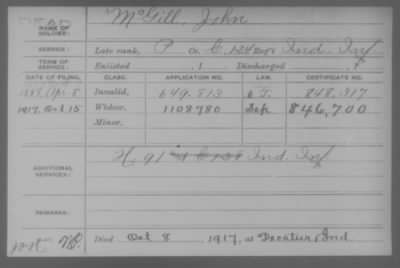 DEAD
NAME OF SOLDIER: McGill, John
SERVICE: Late rank, P Co. C, 124 Reg't Ind. Inf.
TERM OF SERVICE: Enlisted , 1 Discharged , 1
DATE OF FILING. CLASS. APPLICATION NO. LAW. CERTIFICATE NO.
Apr 8 Invalid, 649.813 848.317
1917. Oct 15 Widow, 1108780 Sep 846,700
Minor,
ADDITIONAL SERVICES: H. 91 Ind. Inf.
REMARKS:
Died Oct 8, 1917, at Decatur, Ind